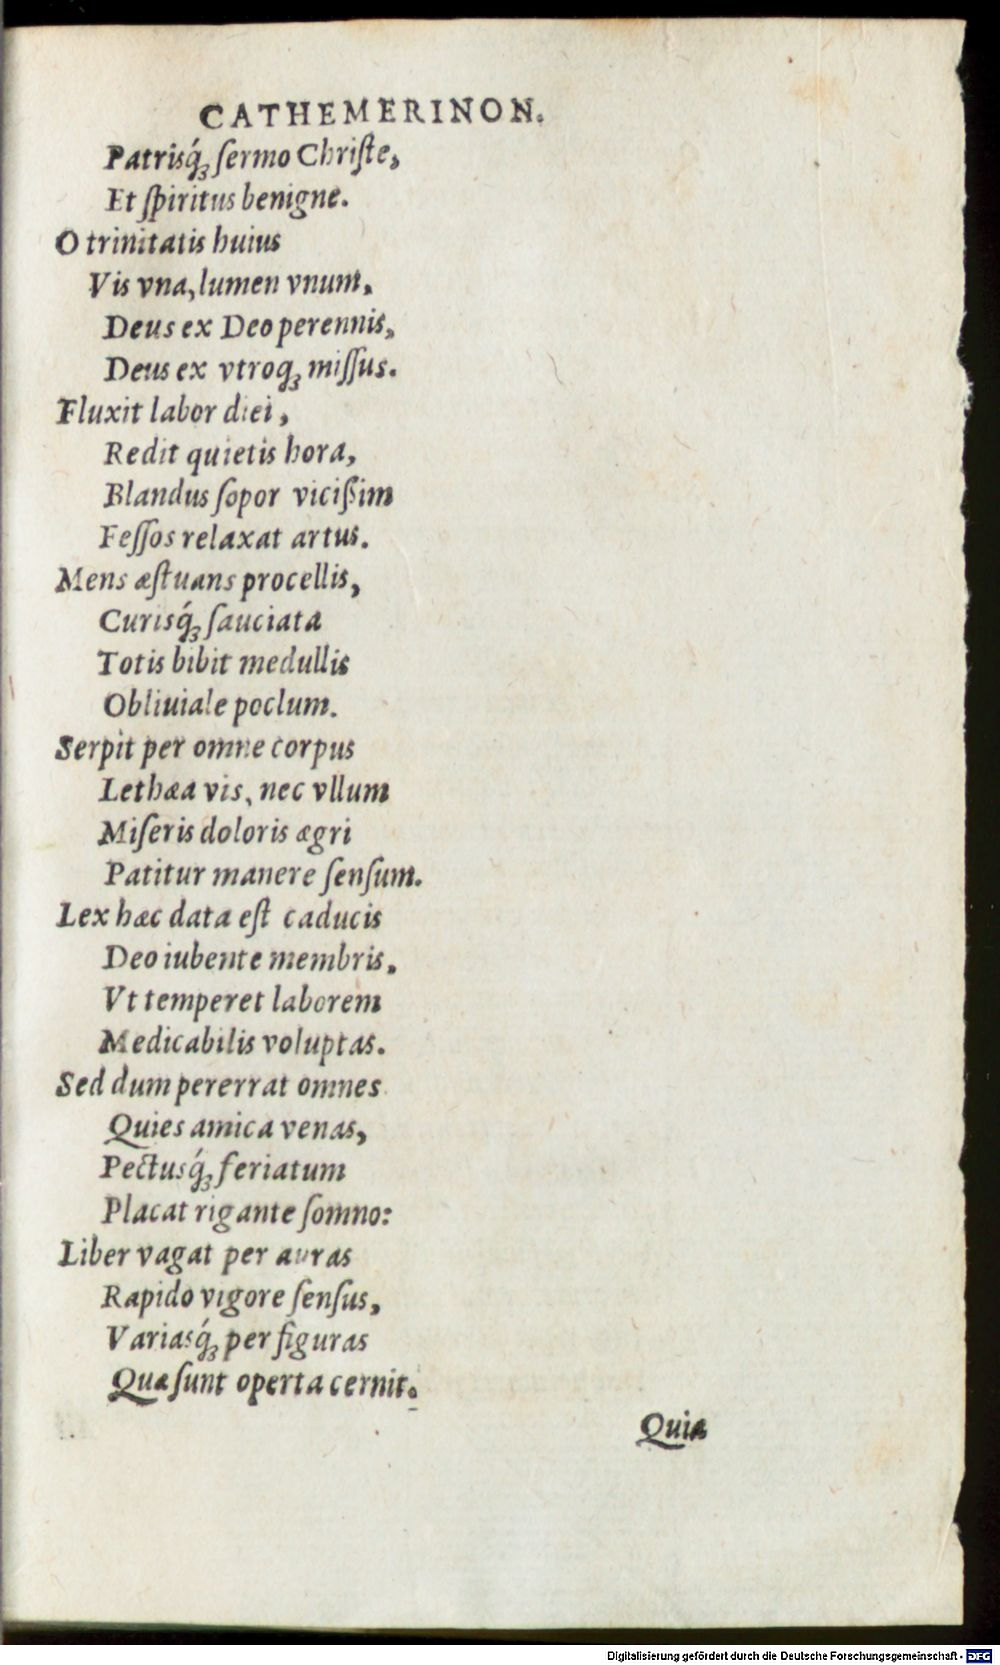 CATHEMERINON.
Patrisq́ꝫ ſermo Chriſte,
Et ſpiritus benigne.
O trinitatis huius
Vis vna, lumen vnum,
Deus ex Deo perennis,
Deus ex vtroqꝫ miſſus.
Fluxit labor diei,
Redit quietis hora,
Blandus ſopor vicißim
Feſſos relaxat artus.
Mens æſtuans procellis,
Curisq́ꝫ ſauciata
Totis bibit medullis
Obliuiale poclum.
Serpit per omne corpus
Lethæa vis, nec vllum
Miſeris doloris ægri
Patitur manere ſenſum.
Lex hæc data eſt caducis
Deo iubente membris,
Vt temperet laborem
Medicabilis voluptas.
Sed dum pererrat omnes
Quies amica venas,
Pectusq́ꝫ feriatum
Placat rigante ſomno:
Liber vagat per auras
Rapido vigore ſenſus,
Variasq́ꝫ per figuras
Quæ ſunt operta cernit.
Quia
Digitalisierung gefördert durch die Deutsche Forschungsgemeinschaft - DFG